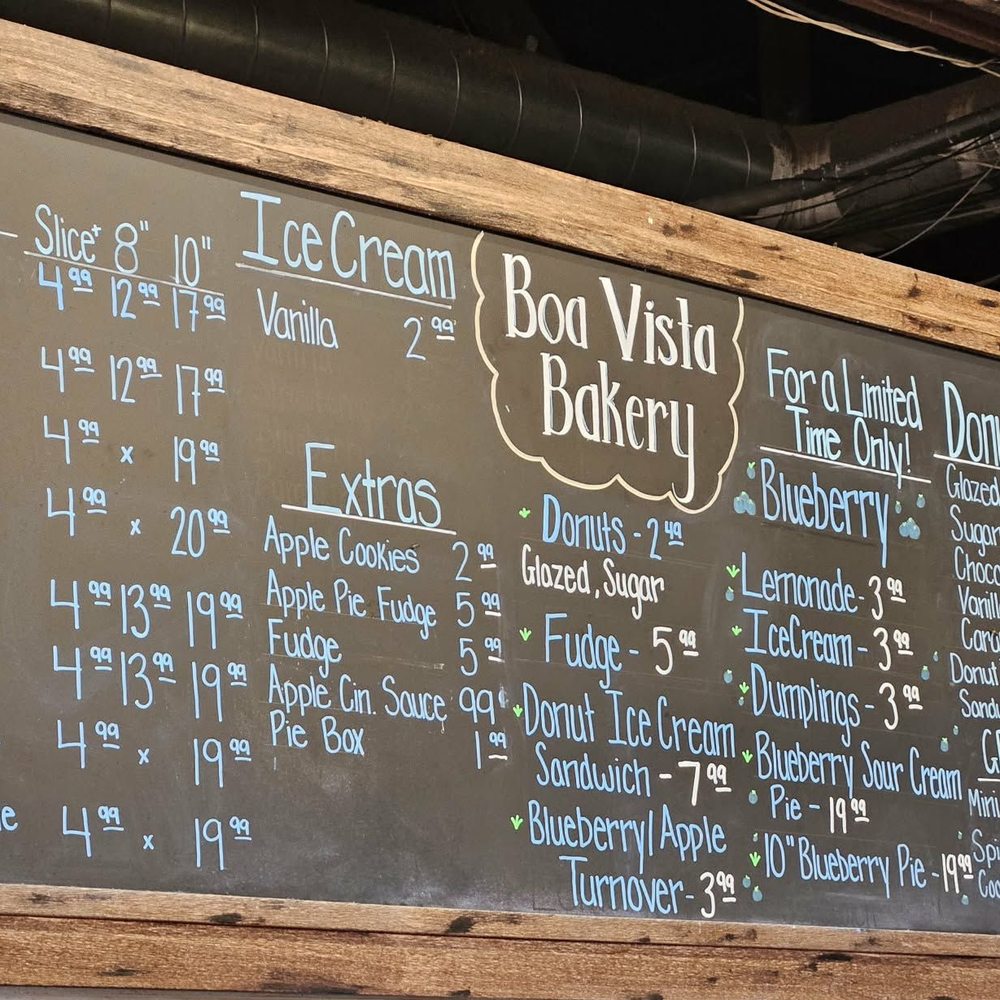 Slice+ 8" 10"
4.99 12.99 17.99
4.99 12.99 17.99
4.99 x 19.99
4.99 x 20.99
4.99 13.99 19.99
4.99 13.99 19.99
4.99 x 19.99
4.99 x 19.99
Ice Cream
Vanilla 2.99
Extras
Apple Cookies 2.99
Apple Pie Fudge 5.99
Fudge 5.99
Apple Cin. Sauce 99¢
Pie Box 1.99
Boa Vista
Bakery
Donuts - 2.49
Glazed, Sugar
Fudge - 5.99
Donut Ice Cream
Sandwich - 7.99
Blueberry/Apple
Turnover - 3.99
For a Limited
Time Only!
Blueberry
Lemonade - 3.99
Ice Cream - 3.99
Dumplings - 3.99
Blueberry Sour Cream
Pie - 19.99
10" Blueberry Pie - 19.99
Glazed
Sugar
Donut